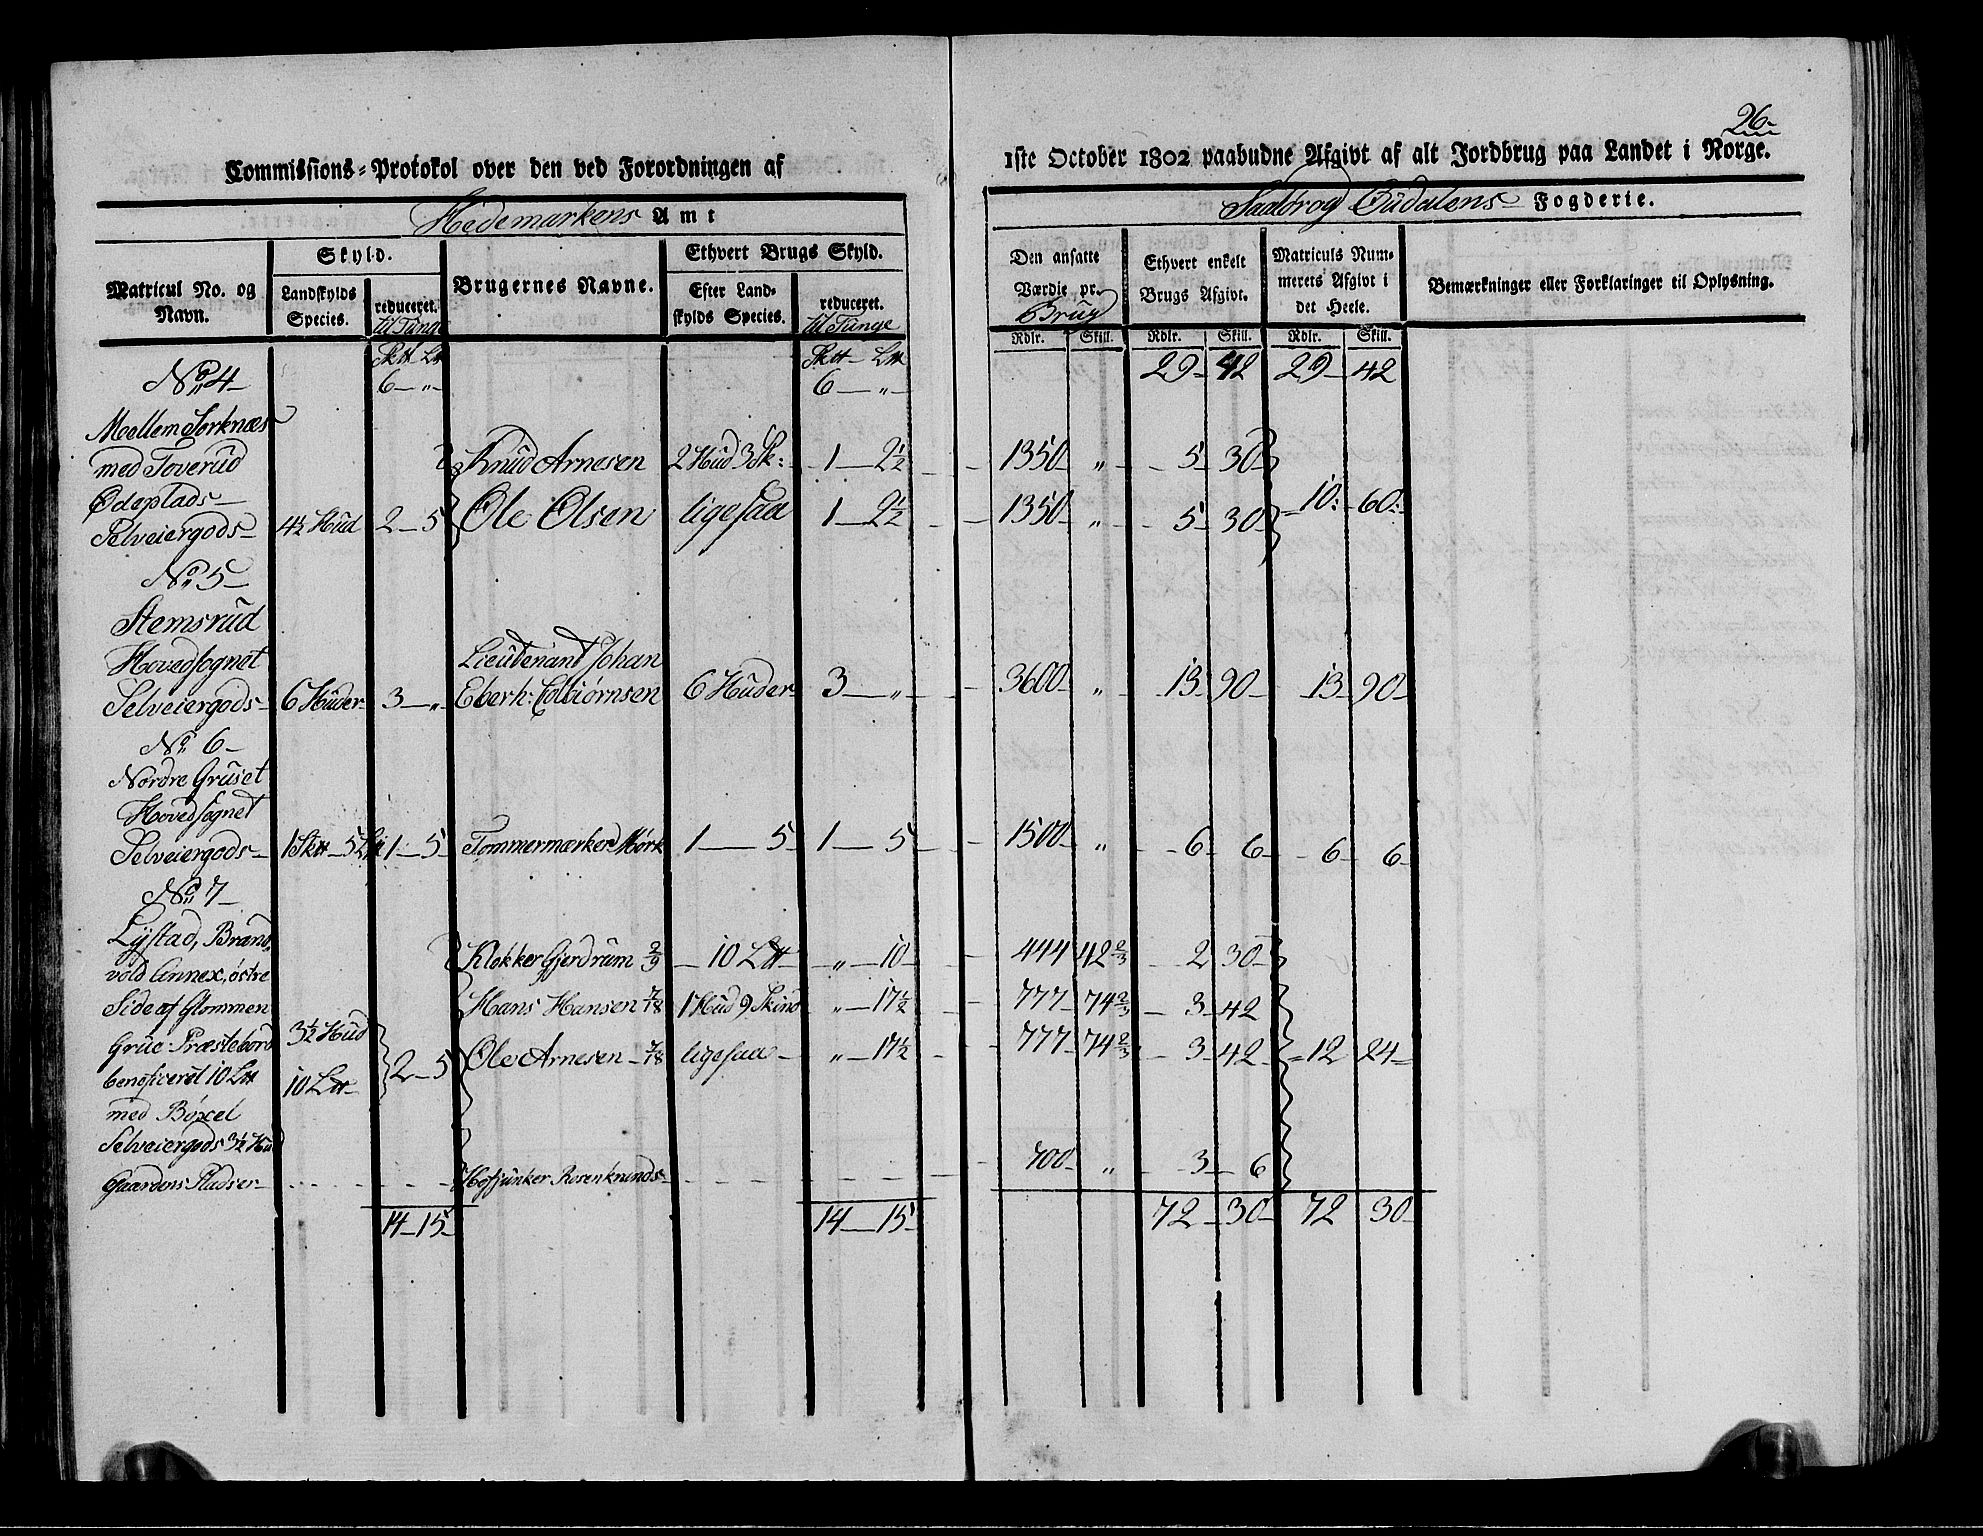 26
Commissions-Protokol over den ved Forordningen af
1ste October 1802 paabudne Afgivt af alt Jordbrug paa Landet i Norge.
Hedemarkens Amt
Fogderie.
Matricul No. og Navn.
Skyld.
Landskylds Species.
reduceret. til Tunge
Brugernes Navne.
Ethvert Brugs Skyld.
Efter Landskylds Species.
reduceret. til Tunge
Den ansatte Værdie pr. Brug
Ethvert enkelt Brugs Afgivt.
Matriculs Nummerets Afgivt i det Heele.
Bemærkninger eller Forklaringer til Oplysning.
Rdlr. Skill. Rdlr. Skill. Rdlr. Skill.
6 — „ 6 — „ 29 — 42 29 — 42
No 4
Mellem Sorknæs
med Toverud Knud Arnesen 2 Hud 3 Sk: 1 — 2½ 1350 „ 5 30
Ødeplads
Selveiergods 4½ Hud 2 — 5 Ole Olsen ligesaa 1 — 2½ 1350 „ 5 30 10: 60:
No 5
Stemsrud
Hovedsognet Lieutenant Johan
Selveiergods 6 Huder 3 — „ Eberh: Colbiørnsen 6 Huder 3 — „ 3600 „ 13 90 13 90
No 6
Nordre Gruset
Hovedsognet
Selveiergods 1 Sk℔ 5 L℔ 1 — 5 Tommermærker Mørk 1 — 5 1 — 5 1500 „ 6 6 6 6
No 7
Lystad, Brand,
vold Annex, østre Klokker Gjerdrum 2/9 10 L℔ „ — 10 444 42⅔ 2 30
Side af Glommen Hans Hansen 7/18 1 Hud 9 Skind „ — 17½ 777 74⅔ 3 42
Grue Præstebord 3½ Hud
beneficeret 10 L℔ 10 L℔ 2 — 5 Ole Arnesen 7/18 ligesaa „ — 17½ 777 74⅔ 3 42 12 24
med Bøxel
Selveiergods 3½ Hud
Gaardens Pladser Hofjunker Rosenkrands 700 „ 3 6
14 — 15 14 — 15 72 30 72 30